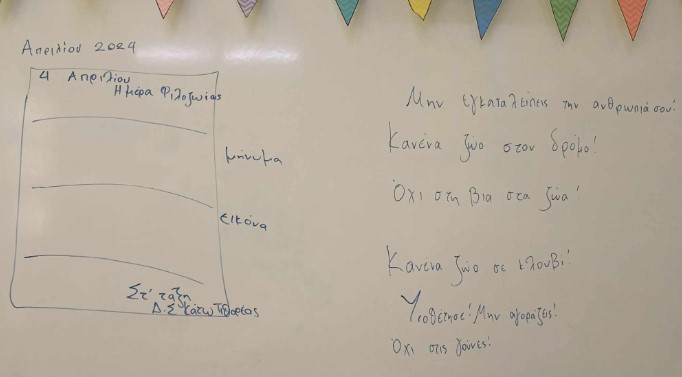 Απριλίου 2024
4 Απριλίου
Ημέρα Φιλοζωίας
μήνυμα
εικόνα
Στ' τάξη
Δ.Σ Κάτω
Μην εγκαταλείπεις την ανθρωπιά σου!
Κανένα ζώο στον δρόμο!
Όχι στη βια στα ζώα!
Κανένα ζώο σε κλουβί!
Υιοθέτησε! Μην αγοράζεις!
Όχι στις γούνες!